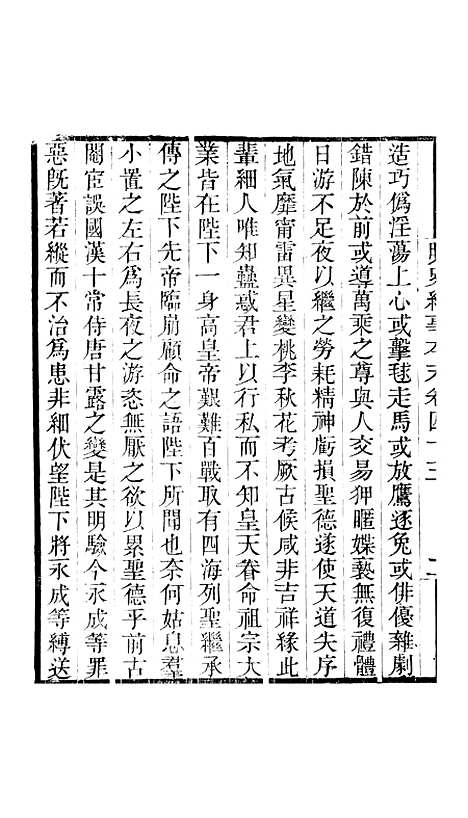 明史紀事本末卷四十三 二
造巧僞淫蕩上心或擊毬走馬或放鷹逐兔或俳優雜劇
錯陳於前或導萬乘之尊與人交易狎暱媟褻無復禮體
日游不足夜以繼之勞耗精神虧損聖德遂使天道失序
地氣靡甯雷異星變桃李秋花考厥古候咸非吉祥緣此
輩細人唯知蠱惑君上以行私而不知皇天眷命祖宗大
業皆在陛下一身高皇帝艱難百戰取有四海列聖繼承
傳之陛下先帝臨崩顧命之語陛下所聞也奈何姑息羣
小置之左右爲長夜之游恣無厭之欲以累聖德乎前古
閹宦誤國漢十常侍唐甘露之變是其明驗今永成等罪
惡旣著若縱而不治爲患非細伏望陛下將永成等縛送